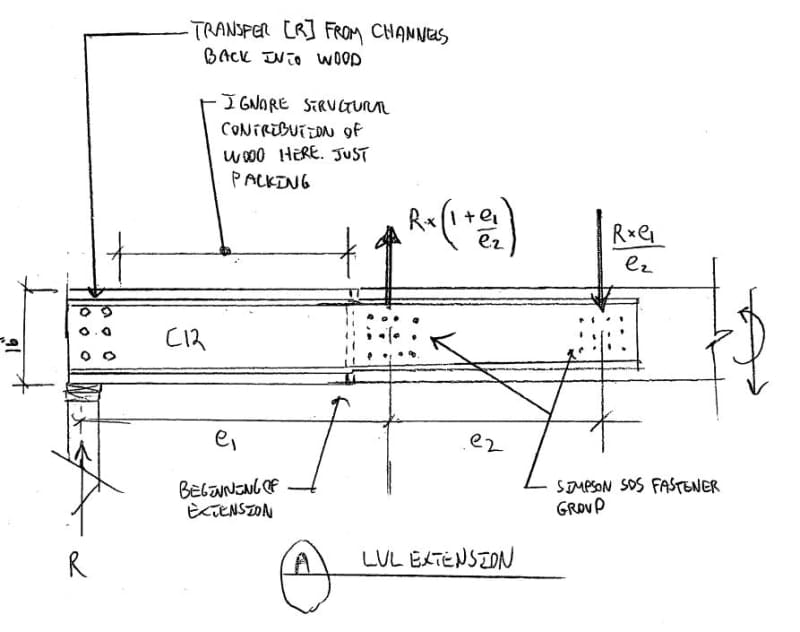 TRANSFER [R] FROM CHANNELS
BACK INTO WOOD
IGNORE STRUCTURAL
CONTRIBUTION OF
WOOD HERE. JUST
PACKING
R×(1+e1/e2)
R×e1
e2
C12
16"
e1
e2
BEGINNING OF
EXTENSION
SIMPSON SDS FASTENER
GROUP
R
A
LVL EXTENSION